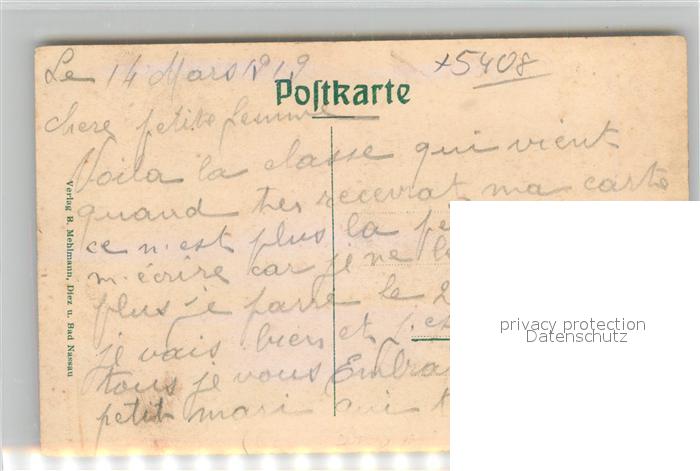 Le 14 Mars 1919
+5408
Postkarte
Chere petite femme
Voila la classe qui vient
quand tu recevrat ma carte
ce n'est plus la pe
m'écrire car je ne le
plus je parre le 2
je vais bien et j'es
tous je vous Embra
petit mari qui t
Verlag B. Mehlmann, Diez u. Bad Nassau
privacy protection
Datenschutz